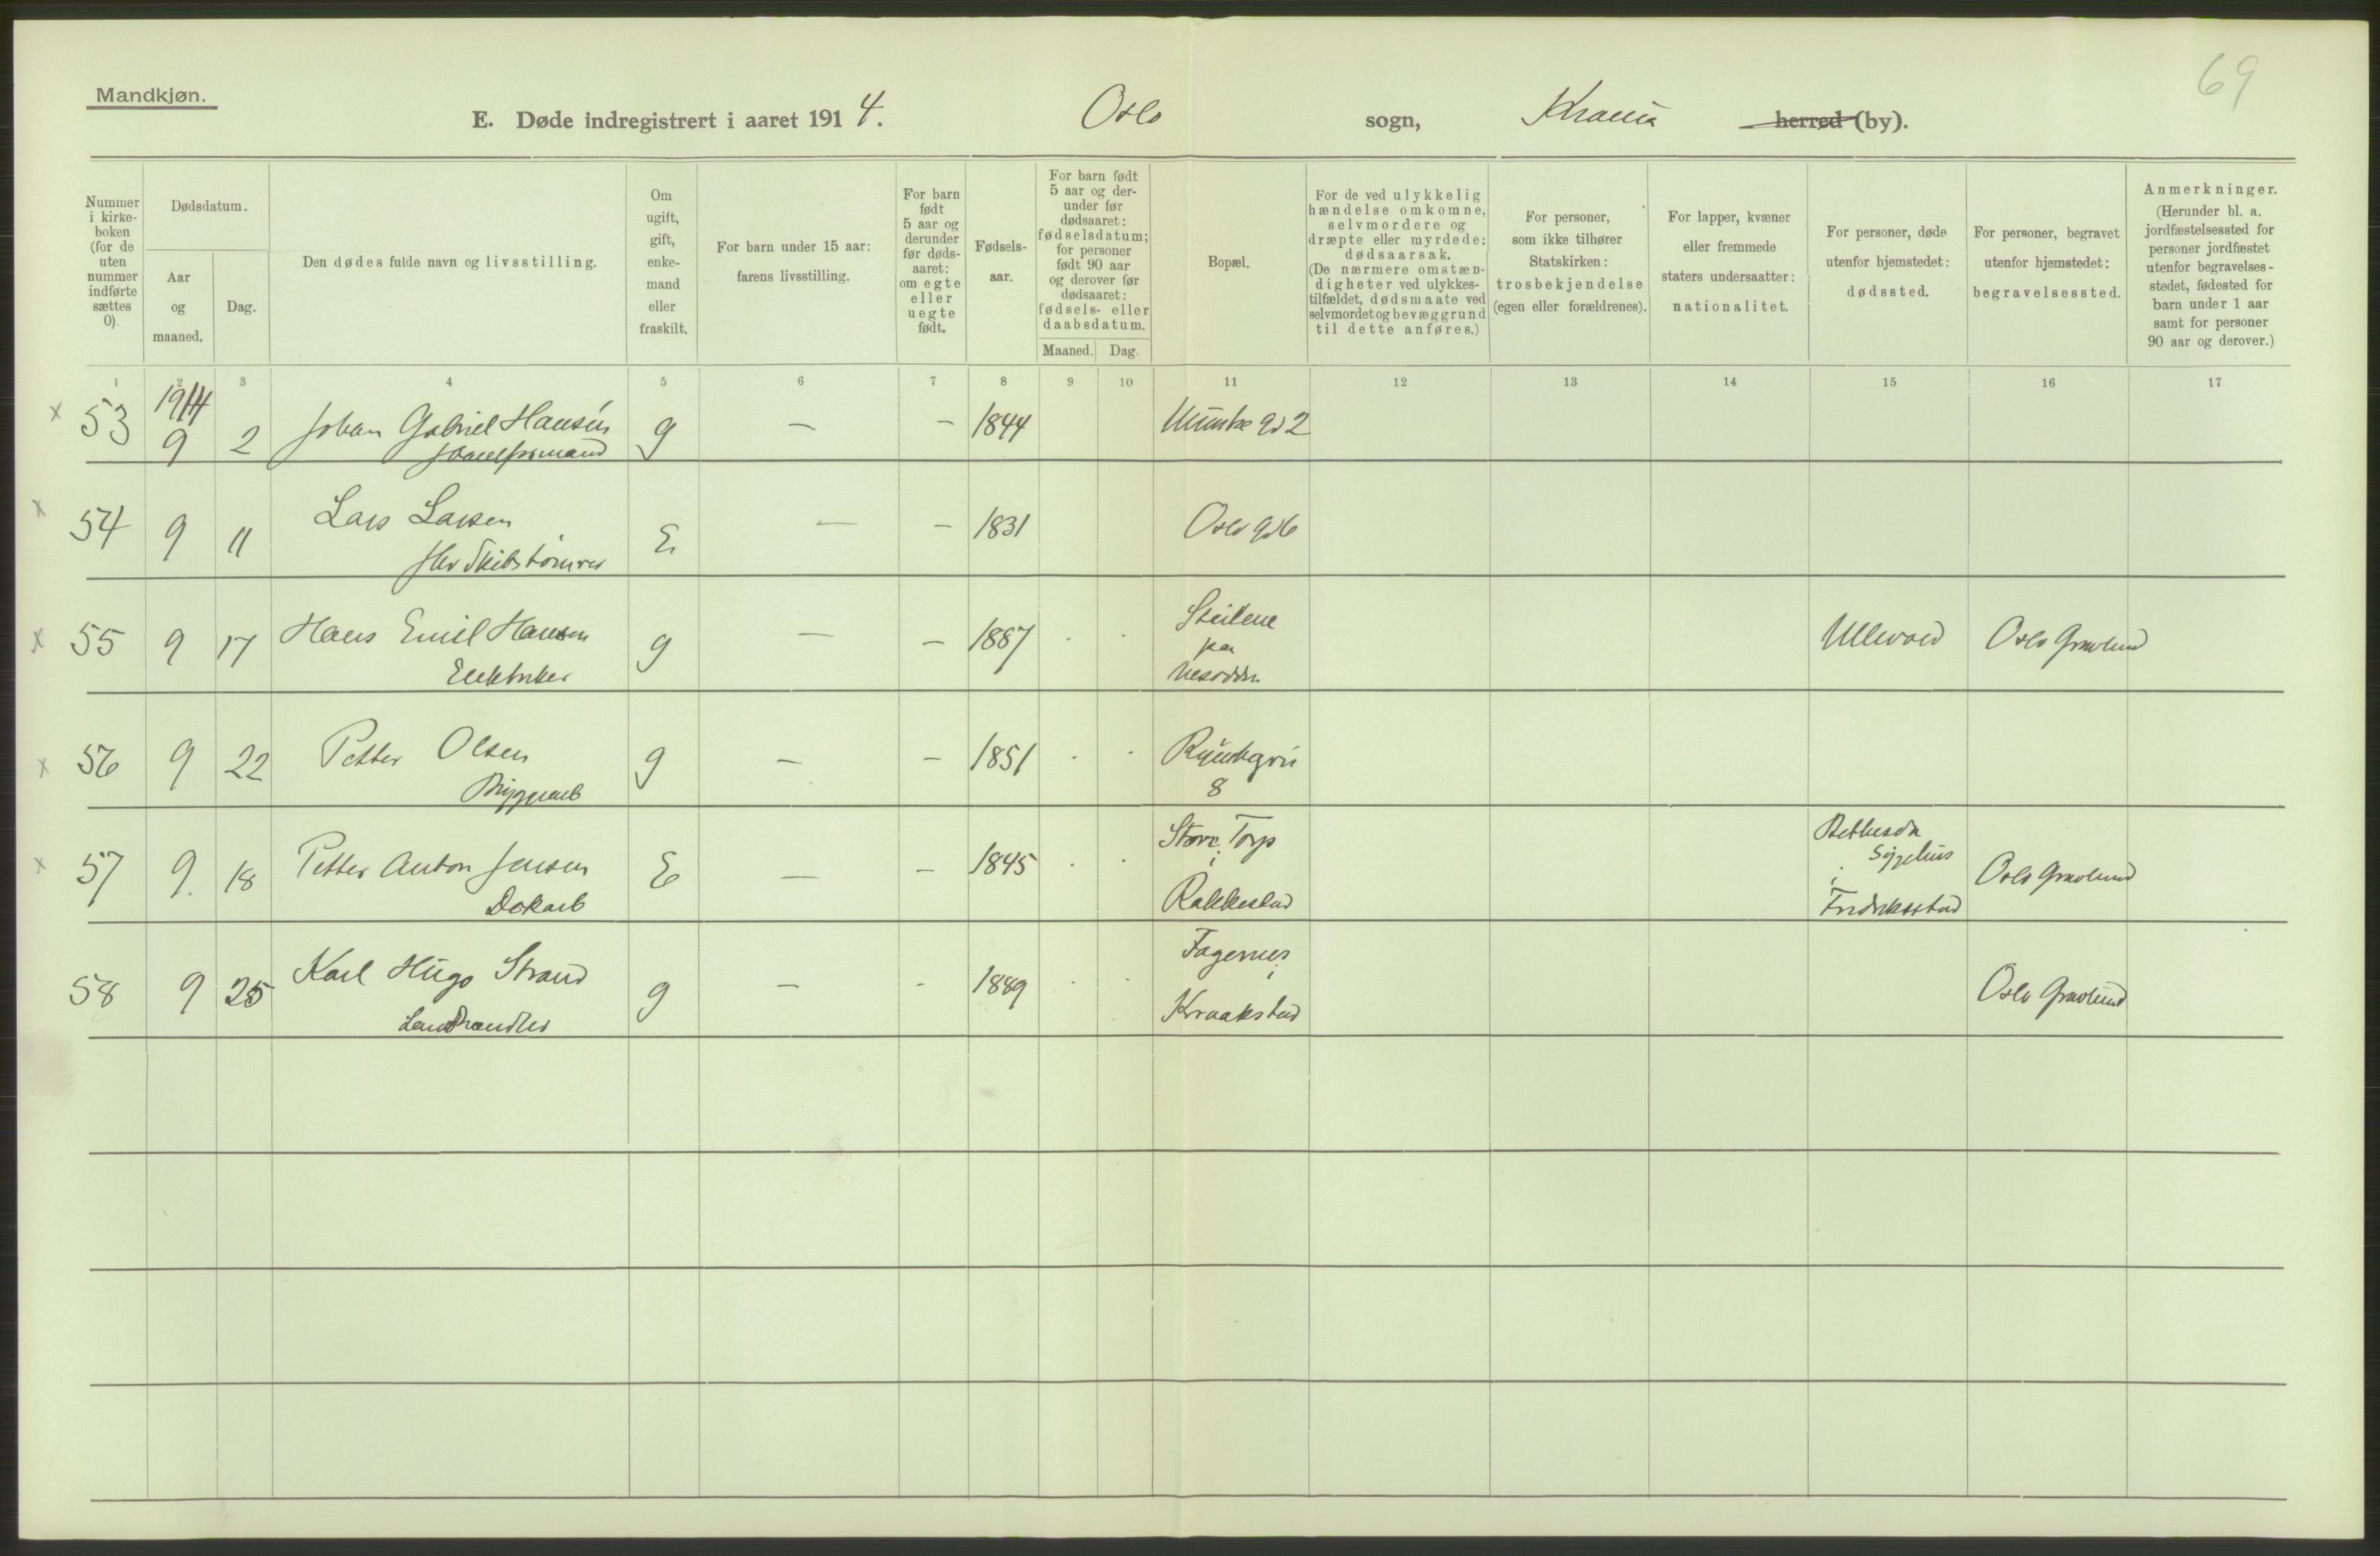 69
Mandkjøn.
E. Døde indregistrert i aaret 1914. Oslo sogn, Krania herred (by).
Nummer i kirke- boken (for de uten nummer indførte sættes 0).
Dødsdatum.
Aar og maaned.
Dag.
Den dødes fulde navn og livsstilling.
Om ugift, gift, enke- mand eller fraskilt.
For barn under 15 aar: farens livsstilling.
For barn født 5 aar og derunder før døds- aaret: om egte eller uegte født.
Fødsels- aar.
For barn født 5 aar og der- under før dødsaaret: fødselsdatum; for personer født 90 aar og derover før dødsaaret: fødsels- eller daabsdatum.
Maaned. Dag.
Bopæl.
For de ved ulykkelig hændelse omkomne, selvmordere og dræpte eller myrdede: dødsaarsak. (De nærmere omstæn- digheter ved ulykkes- tilfældet, dødsmaate ved selvmordet og bevæggrund til dette anføres.)
For personer, som ikke tilhører Statskirken: trosbekjendelse (egen eller forældrenes).
For lapper, kvæner eller fremmede staters undersaatter: nationalitet.
For personer, døde utenfor hjemstedet: dødssted.
For personer, begravet utenfor hjemstedet: begravelsessted.
Anmerkninger. (Herunder bl. a. jordfæstelsessted for personer jordfæstet utenfor begravelses- stedet, fødested for barn under 1 aar samt for personer 90 aar og derover.)
1 2 3 4 5 6 7 8 9 10 11 12 13 14 15 16 17
1914
x 53 9 2 Johan Gabriel Hansen g — – 1844 Munke gd 2
x 54 9 11 Lars Larsen E — – 1831 Oslo gd 6
fhv Skibstømrer
x 55 9 17 Hans Emil Hansen g — – 1887 Steilene paa Nesodden Ullevold Oslo Gravlund
Elektriker
x 56 9 22 Petter Olsen g — – 1851 8
Bryggearb
x 57 9. 18 Petter Anton Jensen E — – 1845 Store Torp i Rakkestad Bethesda Sygehus i Fredriksstad Oslo Gravlund
Dokarb
58 9 25 Karl Hugo Strand g — - 1889 Fagernes i Kraakstad Oslo Gravlund
Landhandler